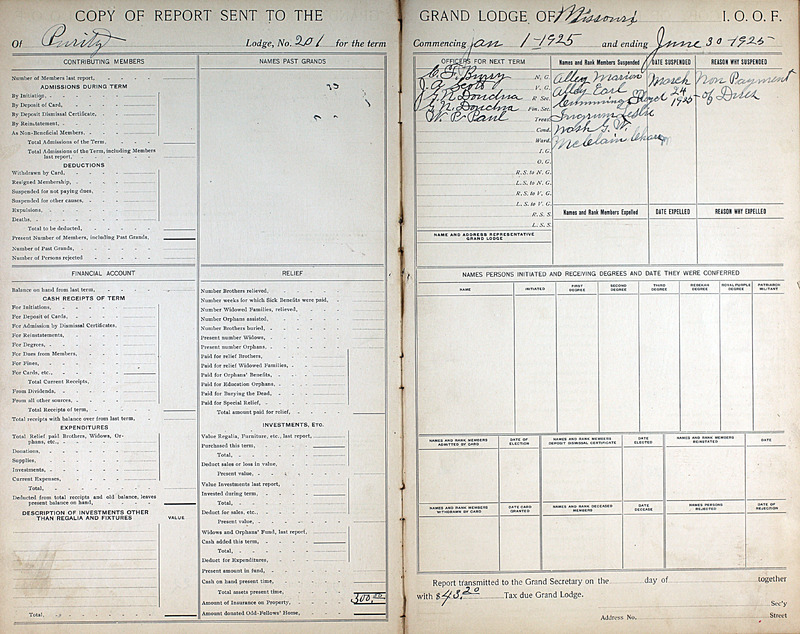 COPY OF REPORT SENT TO THE
Of Purity Lodge, No. 201 for the term
CONTRIBUTING MEMBERS
Number of Members last report,
ADMISSIONS DURING TERM
By Initiation,
By Deposit of Card,
By Deposit Dismissal Certificate,
By Reinstatement,
As Non-Beneficial Members,
Total Admissions of the Term,
Total Admissions of the Term, including Members
last report,
DEDUCTIONS
Withdrawn by Card,
Resigned Membership,
Suspended for not paying dues,
Suspended for other causes,
Expulsions,
Deaths,
Total to be deducted,
Present Number of Members, including Past Grands,
Number of Past Grands,
Number of Persons rejected
NAMES PAST GRANDS
FINANCIAL ACCOUNT
Balance on hand from last term,
CASH RECEIPTS OF TERM
For Initiations,
For Deposit of Cards,
For Admission by Dismissal Certificates,
For Reinstatements,
For Degrees,
For Dues from Members,
For Fines,
For Cards, etc.,
Total Current Receipts,
From Dividends,
From all other sources,
Total Receipts of term,
Total receipts with balance over from last term,
EXPENDITURES
Total Relief paid Brothers, Widows, Or-
phans, etc.,
Donations,
Supplies,
Investments,
Current Expenses,
Total,
Deducted from total receipts and old balance, leaves
present balance on hand,
DESCRIPTION OF INVESTMENTS OTHER
THAN REGALIA AND FIXTURES VALUE
Total,
RELIEF
Number Brothers relieved,
Number weeks for which Sick Benefits were paid,
Number Widowed Families, relieved,
Number Orphans assisted,
Number Brothers buried,
Present number Widows,
Present number Orphans,
Paid for relief Brothers,
Paid for relief Widowed Families,
Paid for Orphans' Benefits,
Paid for Education Orphans,
Paid for Burying the Dead,
Paid for Special Relief,
Total amount paid for relief,
INVESTMENTS, ETC.
Value Regalia, Furniture, etc., last report,
Purchased this term,
Total,
Deduct sales or loss in value,
Present value,
Value Investments last report,
Invested during term,
Total,
Deduct for sales, etc.,
Present value,
Widows and Orphans' Fund, last report,
Cash added this term,
Total,
Deduct for Expenditures,
Present amount in fund,
Cash on hand present time,
Total assets present time,
Amount of Insurance on Property, 300.00
Amount donated Odd-Fellows' Home,
GRAND LODGE OF Missouri I. O. O. F.
Commencing Jan 1-1925 and ending June 30-1925
OFFICERS FOR NEXT TERM
N. G.
J. A. Scott V. G.
G. N. Dondna R. Sec.
G. N. Dondna Fin. Sec.
W. P. Paul Treas.
Cond.
Ward.
I. G.
O. G.
R. S. to N. G.
L. S. to N. G.
R. S. to V. G.
L. S. to V. G.
R. S. S.
L. S. S.
NAME AND ADDRESS REPRESENTATIVE
GRAND LODGE
Names and Rank Members Suspended DATE SUSPENDED REASON WHY SUSPENDED
Alley Marion March Non Payment
Alley Earl 24 of Dues
Cummings Floyd 1925
Ingrum Leslie
Nash G. W.
McClain
Names and Rank Members Expelled DATE EXPELLED REASON WHY EXPELLED
NAMES PERSONS INITIATED AND RECEIVING DEGREES AND DATE THEY WERE CONFERRED
NAME INITIATED FIRST DEGREE SECOND DEGREE THIRD DEGREE REBEKAH DEGREE ROYAL PURPLE DEGREE PATRIARCH MILITANT
NAMES AND RANK MEMBERS ADMITTED BY CARD DATE OF ELECTION NAMES AND RANK MEMBERS DEPOSIT DISMISSAL CERTIFICATE DATE ELECTED NAMES AND RANK MEMBERS REINSTATED DATE
NAMES AND RANK MEMBERS WITHDRAWN BY CARD DATE CARD GRANTED NAMES AND RANK DECEASED MEMBERS DATE DECEASE NAMES PERSONS REJECTED DATE OF REJECTION
Report transmitted to the Grand Secretary on the day of together
with $43.20 Tax due Grand Lodge.
Sec'y
Address No. Street